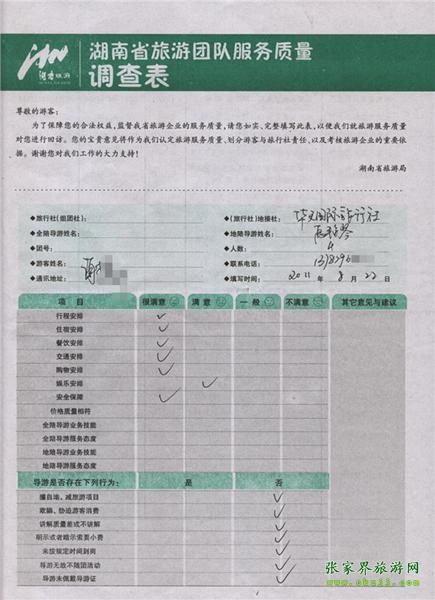 湖南旅游
湖南省旅游团队服务质量
调查表
尊敬的游客：
为了保障您的合法权益，监督我省旅游企业的服务质量，请您如实、完整填写此表，以便我们就旅游服务质量
对您进行回访。您的宝贵意见将作为我们认定旅游服务质量、划分游客与旅行社责任、以及考核旅游企业的重要依
据。谢谢您对我们工作的大力支持！
湖南省旅游局
◆旅行社(组团社)： ◆(旅行社)地接社： 国际旅行社
◆全陪导游姓名： ◆地陪导游姓名：
◆团号： ◆人数： 4
◆游客姓名： 谢 ◆联系电话：
◆通讯地址： ◆填写时间： 2011 年 8 月 22 日
项 目 很满意 满 意 一 般 不满意 其它意见与建议
行程安排 ✓
住宿安排 ✓
餐饮安排 ✓
交通安排 ✓
购物安排 ✓
娱乐安排 ✓
安全保障 ✓
价格质量相符
全陪导游业务技能
全陪导游服务态度
地陪导游业务技能
地陪导游服务态度
导游是否存在下列行为： 是 否
擅自增、减旅游项目 ✓
欺骗、胁迫游客消费 ✓
讲解质量差或不讲解 ✓
明示或者暗示索要小费 ✓
未按规定时间到岗 ✓
导游无故不随团活动 ✓
导游未佩戴导游证 ✓
张家界旅游网